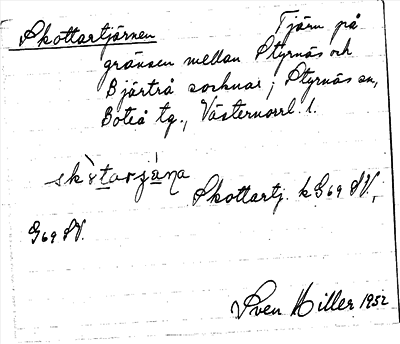 Skottartjärnen Tjärn på
gränsen mellan Styrnäs och
Bjärtrå socknar; Styrnäs sn,
Boteå tg., Västernorrl. l.
Skottartj. k G69 SV,
G69 SV.
Sven Hiller 1952